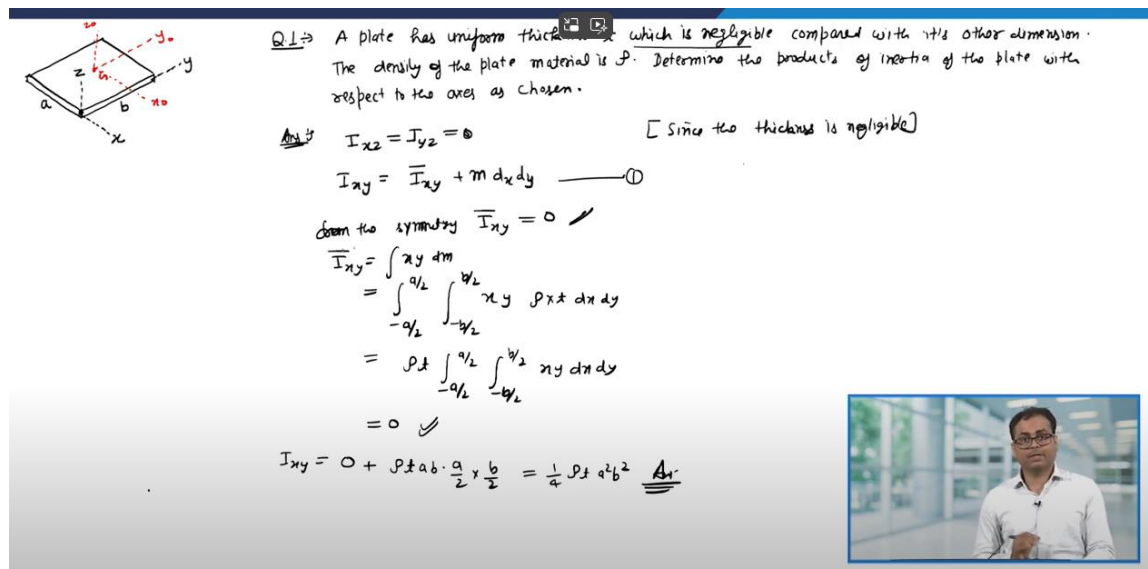 Q.1:→ A plate has uniform thick t which is negligible compared with it's other dimension.
The density of the plate material is ρ. Determine the products of inertia of the plate with
respect to the axes as chosen.
z₀
y₀
G
z
y
a
b
x₀
x
Ans:
I_xz = I_yz = 0 [Since the thickness is negligible]
I_xy = Ī_xy + m dₓ d_y ——— ①
from the symmetry Ī_xy = 0
Ī_xy = ∫ xy dm
= ∫_{-a/2}^{a/2} ∫_{-b/2}^{b/2} xy ρ×t dx dy
= ρt ∫_{-a/2}^{a/2} ∫_{-b/2}^{b/2} xy dx dy
= 0 ✓
I_xy = 0 + ρtab · a/2 × b/2 = 1/4 ρt a²b² Ans.